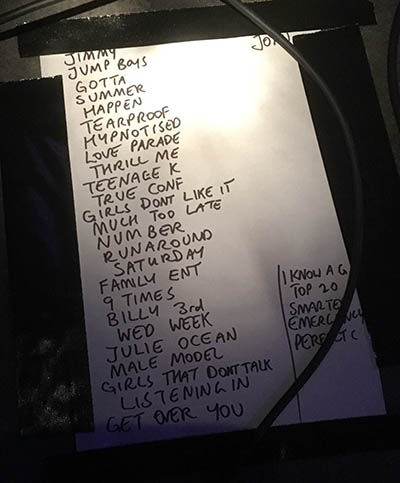 JOHN
JIMMY
JUMP BOYS
GOTTA
SUMMER
HAPPEN
TEARPROOF
HYPNOTISED
LOVE PARADE
THRILL ME
TEENAGE K
TRUE CONF
GIRLS DONT LIKE IT
MUCH TOO LATE
NUMBER
RUNAROUND
SATURDAY
FAMILY ENT
9 TIMES
BILLY 3rd
WED WEEK
JULIE OCEAN
MALE MODEL
GIRLS THAT DONT TALK
LISTENING IN
GET OVER YOU
I KNOW A G
TOP 20
SMARTER
EMERGENCY
PERFECT C